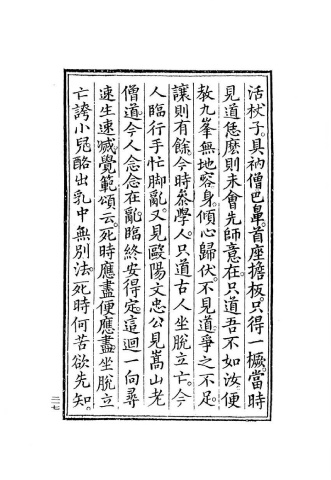 活杖子。具衲僧巴鼻。首座擔板。只得一橛。當時
見道恁麽則未會先師意在。只道吾不如汝便
教九峯無地容身。傾心歸伏。不見道。爭之不足。
讓則有餘。今時叅學人。只道古人坐脫立亡。今
人臨行手忙脚亂。又見歐陽文忠公見嵩山老
僧道。今人念念在亂。臨終安得㝎。這迴一向尋
速生速滅。覺範頌云。死時應盡便應盡。坐脫立
亡誇小兒。酪出乳中無別法。死時何苦欲先知。
二一七